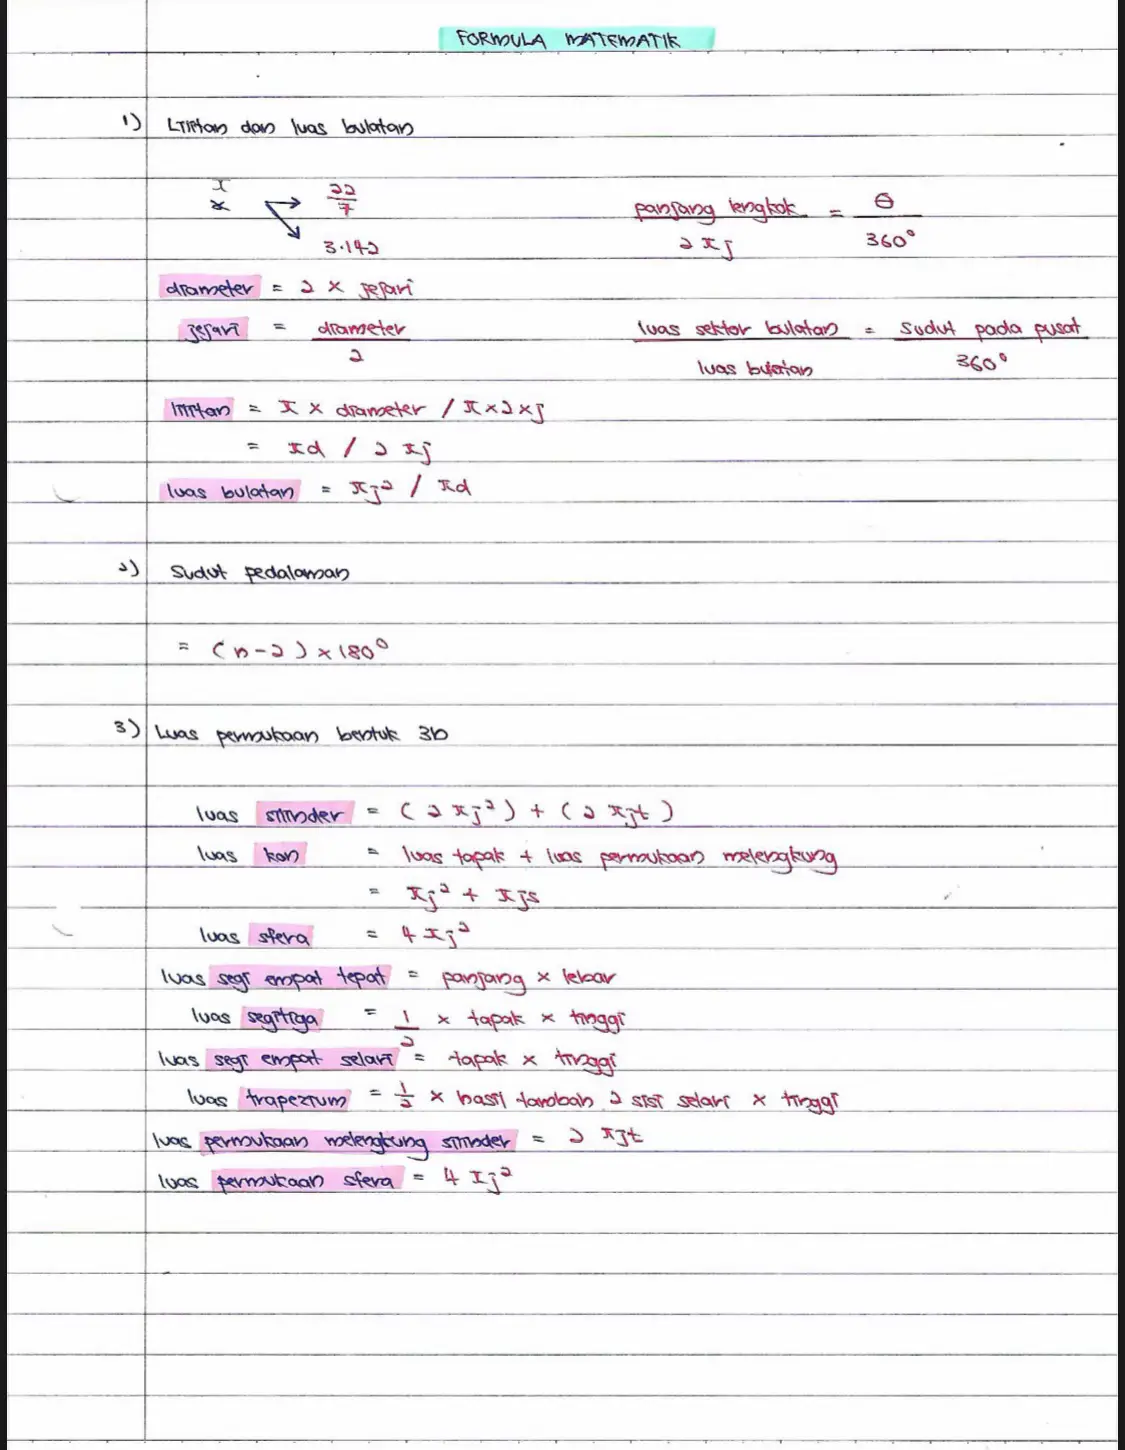 FORMULA MATEMATIK
1) Lilitan dan luas bulatan
π 22/7
3.142
panjang lengkok / 2πj = θ / 360°
diameter = 2 × jejari
jejari = diameter / 2
luas sektor bulatan / luas bulatan = sudut pada pusat / 360°
lilitan = π × diameter / π×2×j
= πd / 2πj
luas bulatan = πj² / πd
2) Sudut pedalaman
= (n-2) × 180°
3) Luas permukaan bentuk 3D
luas silinder = (2πj²) + (2πjt)
luas kon = luas tapak + luas permukaan melengkung
= πj² + πjs
luas sfera = 4πj²
luas segi empat tepat = panjang × lebar
luas segitiga = 1/2 × tapak × tinggi
luas segi empat selari = tapak × tinggi
luas trapezium = 1/2 × hasil tambah 2 sisi selari × tinggi
luas permukaan melengkung silinder = 2πjt
luas permukaan sfera = 4πj²